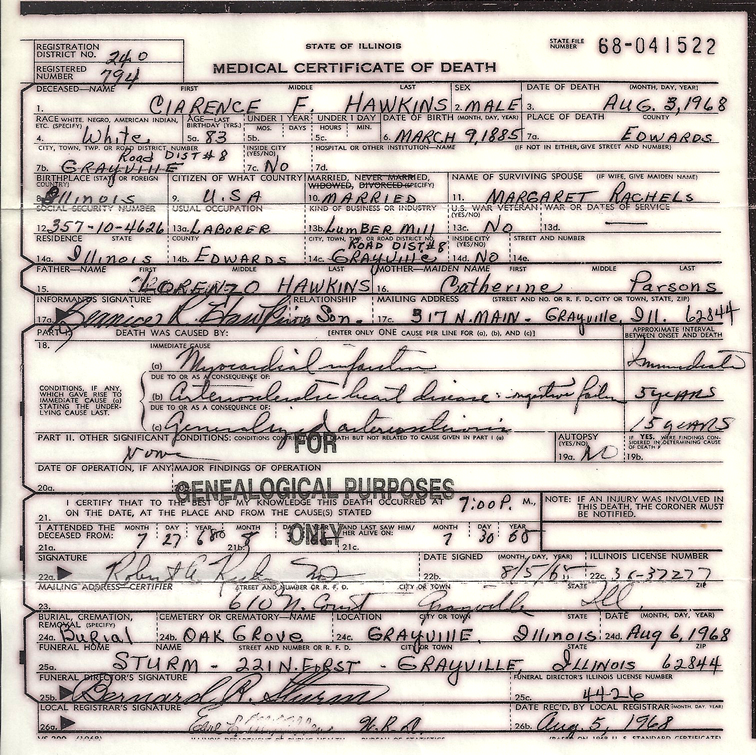 REGISTRATION DISTRICT NO. 240
STATE OF ILLINOIS
STATE FILE NUMBER 68-041522
REGISTERED NUMBER 794
MEDICAL CERTIFICATE OF DEATH
DECEASED—NAME FIRST MIDDLE LAST SEX DATE OF DEATH (MONTH, DAY, YEAR)
1. CLARENCE F. HAWKINS 2. MALE 3. AUG. 3, 1968
RACE WHITE, NEGRO, AMERICAN INDIAN, ETC. (SPECIFY) AGE—LAST BIRTHDAY (YRS.) UNDER 1 YEAR MOS. DAYS UNDER 1 DAY HOURS MIN. DATE OF BIRTH (MONTH, DAY, YEAR) PLACE OF DEATH COUNTY
4. White 5a. 83 5b. 5c. 6. MARCH 9, 1885 7a. EDWARDS
CITY, TOWN, TWP. OR ROAD DISTRICT NO. INSIDE CITY (YES/NO) HOSPITAL OR OTHER INSTITUTION—NAME (IF NOT IN EITHER, GIVE STREET AND NUMBER)
Road DIST #8
7b. GRAYVILLE 7c. NO 7d.
BIRTHPLACE (STATE OR FOREIGN COUNTRY) CITIZEN OF WHAT COUNTRY MARRIED, NEVER MARRIED, WIDOWED, DIVORCED (SPECIFY) NAME OF SURVIVING SPOUSE (IF WIFE, GIVE MAIDEN NAME)
8. Illinois 9. U.S.A 10. MARRIED 11. MARGARET RACHELS
SOCIAL SECURITY NUMBER USUAL OCCUPATION KIND OF BUSINESS OR INDUSTRY U.S. WAR VETERAN (YES/NO) WAR OR DATES OF SERVICE
12. 357-10-4626 13a. LABORER 13b. LUMBER MILL 13c. NO 13d. —
RESIDENCE STATE COUNTY CITY, TOWN, TWP. OR ROAD DISTRICT NO. INSIDE CITY (YES/NO) STREET AND NUMBER
ROAD DIST #8
14a. Illinois 14b. EDWARDS 14c. GRAYVILLE 14d. NO 14e.
FATHER—NAME FIRST MIDDLE LAST MOTHER—MAIDEN NAME FIRST MIDDLE LAST
15. LORENZO HAWKINS 16. Catherine Parsons
INFORMANT'S SIGNATURE RELATIONSHIP MAILING ADDRESS (STREET AND NO. OR R. F. D., CITY OR TOWN, STATE, ZIP)
17a. R. Hawkins 17b. Son. 17c. 317 N. MAIN - GRAYVILLE, Ill. 62844
PART I. DEATH WAS CAUSED BY: [ENTER ONLY ONE CAUSE PER LINE FOR (a), (b), AND (c)] APPROXIMATE INTERVAL BETWEEN ONSET AND DEATH
18. IMMEDIATE CAUSE
(a) Myocardial infarction Immediate
DUE TO OR AS A CONSEQUENCE OF:
CONDITIONS, IF ANY, WHICH GAVE RISE TO IMMEDIATE CAUSE (a) STATING THE UNDERLYING CAUSE LAST.
(b) heart disease 5 years
DUE TO OR AS A CONSEQUENCE OF:
(c) 15 years
PART II. OTHER SIGNIFICANT CONDITIONS: CONDITIONS DEATH BUT NOT RELATED TO CAUSE GIVEN IN PART I (a) AUTOPSY (YES/NO) IF YES, WERE FINDINGS CONSIDERED IN DETERMINING CAUSE OF DEATH
None 19a. NO 19b.
FOR
DATE OF OPERATION, IF ANY MAJOR FINDINGS OF OPERATION
20a.
GENEALOGICAL PURPOSES
I CERTIFY THAT TO THE BEST OF MY KNOWLEDGE THIS DEATH OCCURRED AT 7:00 P. M., ON THE DATE, AT THE PLACE AND FROM THE CAUSE(S) STATED
21.
NOTE: IF AN INJURY WAS INVOLVED IN THIS DEATH, THE CORONER MUST BE NOTIFIED.
ONLY
I ATTENDED THE DECEASED FROM: MONTH DAY YEAR MONTH DAY AND LAST SAW HIM/HER ALIVE ON: MONTH DAY YEAR
21a. 7 27 68 21b. 8 21c. 7 30 68
SIGNATURE DATE SIGNED (MONTH, DAY, YEAR) ILLINOIS LICENSE NUMBER
22a. Robert A. 22b. 8/5/68 22c. 36-37277
MAILING ADDRESS—CERTIFIER STREET AND NUMBER OR R. F. D. CITY OR TOWN STATE ZIP
23. 610 N. Court Grayville Ill.
BURIAL, CREMATION, REMOVAL (SPECIFY) CEMETERY OR CREMATORY—NAME LOCATION CITY OR TOWN STATE DATE (MONTH, DAY, YEAR)
24a. Burial 24b. OAK GROVE 24c. GRAYVILLE, Illinois 24d. Aug 6, 1968
FUNERAL HOME NAME STREET AND NUMBER OR R. F. D. CITY OR TOWN STATE ZIP
25a. STURM - 221 N. FIRST - GRAYVILLE, Illinois 62844
FUNERAL DIRECTOR'S SIGNATURE FUNERAL DIRECTOR'S ILLINOIS LICENSE NUMBER
25b. Bernard R. Sturm 25c. 4426
LOCAL REGISTRAR'S SIGNATURE DATE REC'D. BY LOCAL REGISTRAR (MONTH, DAY, YEAR)
26a. 26b. Aug. 5, 1968